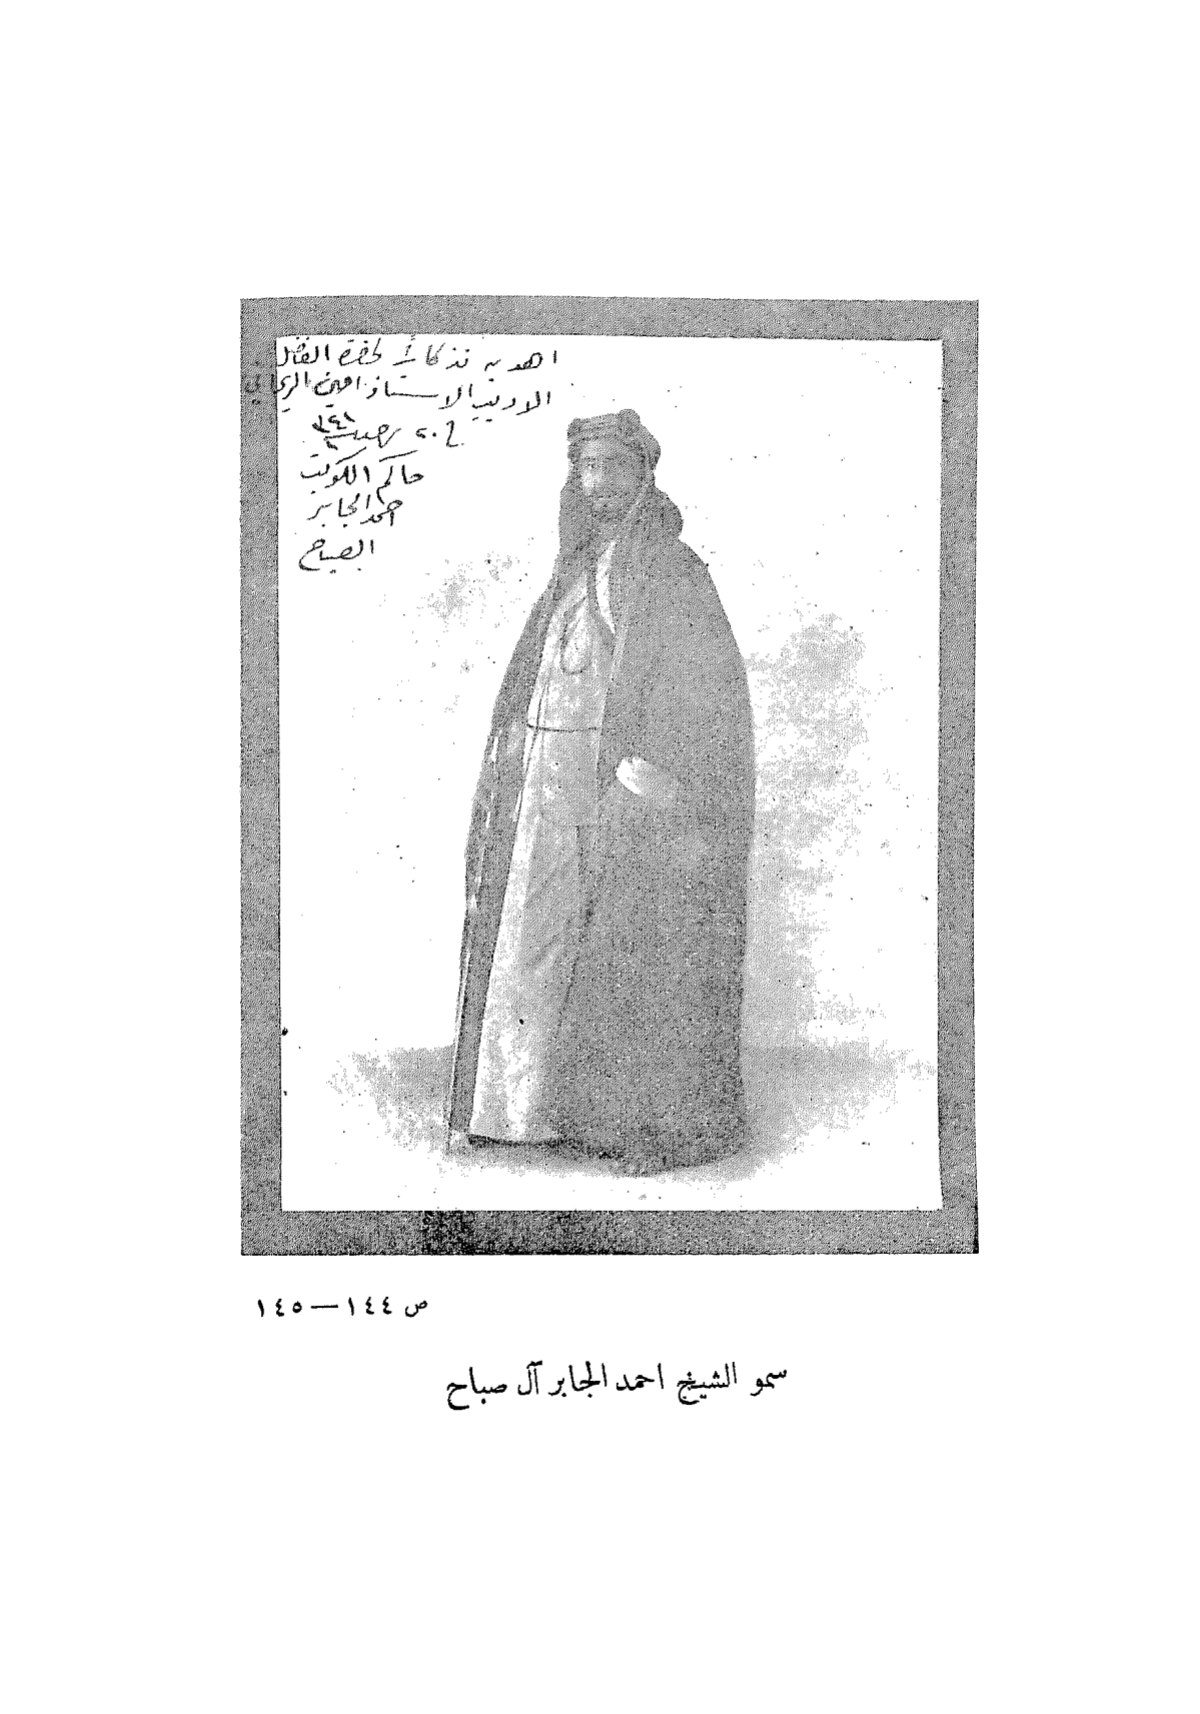 اهديه تذكاراً لحضرة الفاضل
الاديب الاستاذ امين الريحاني
في ٢٠ رجب ١٣٤١
حاكم الكويت
احمد الجابر
الصباح
ص ١٤٤—١٤٥
سمو الشيخ احمد الجابر آل صباح